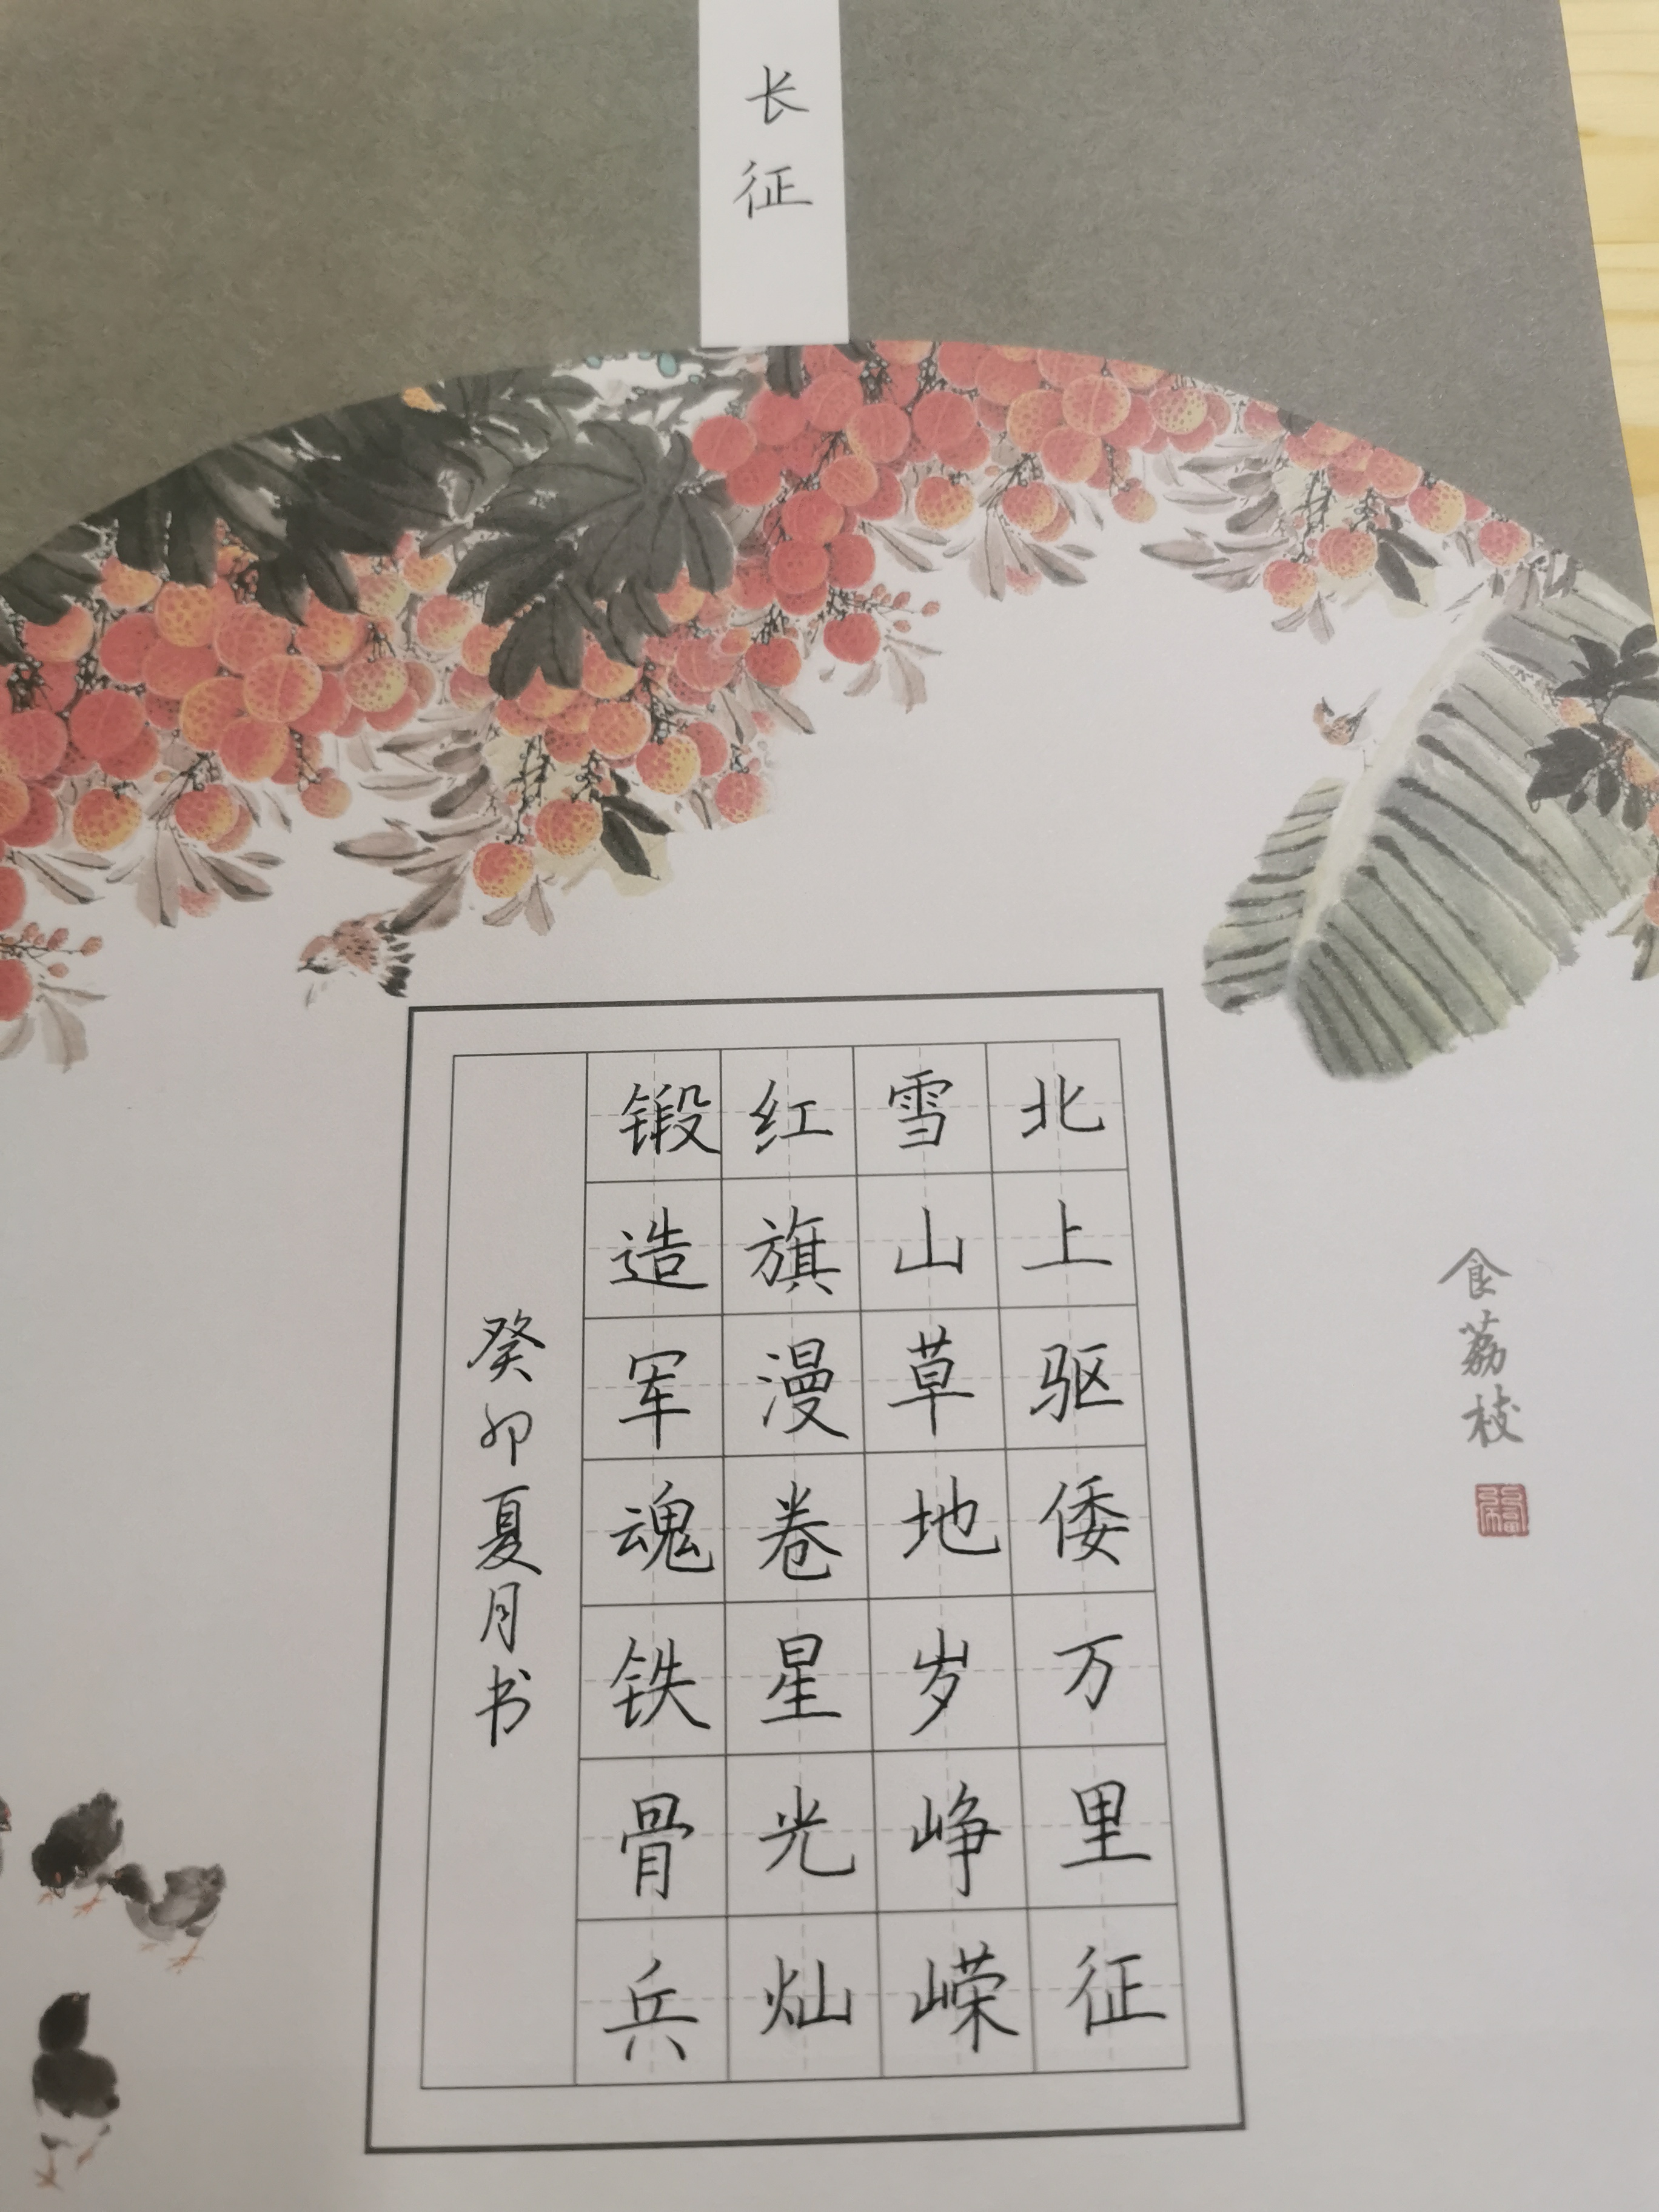 长征
北上驱倭万里征
雪山草地岁峥嵘
红旗漫卷星光灿
锻造军魂铁骨兵
癸卯夏月书
食荔枝